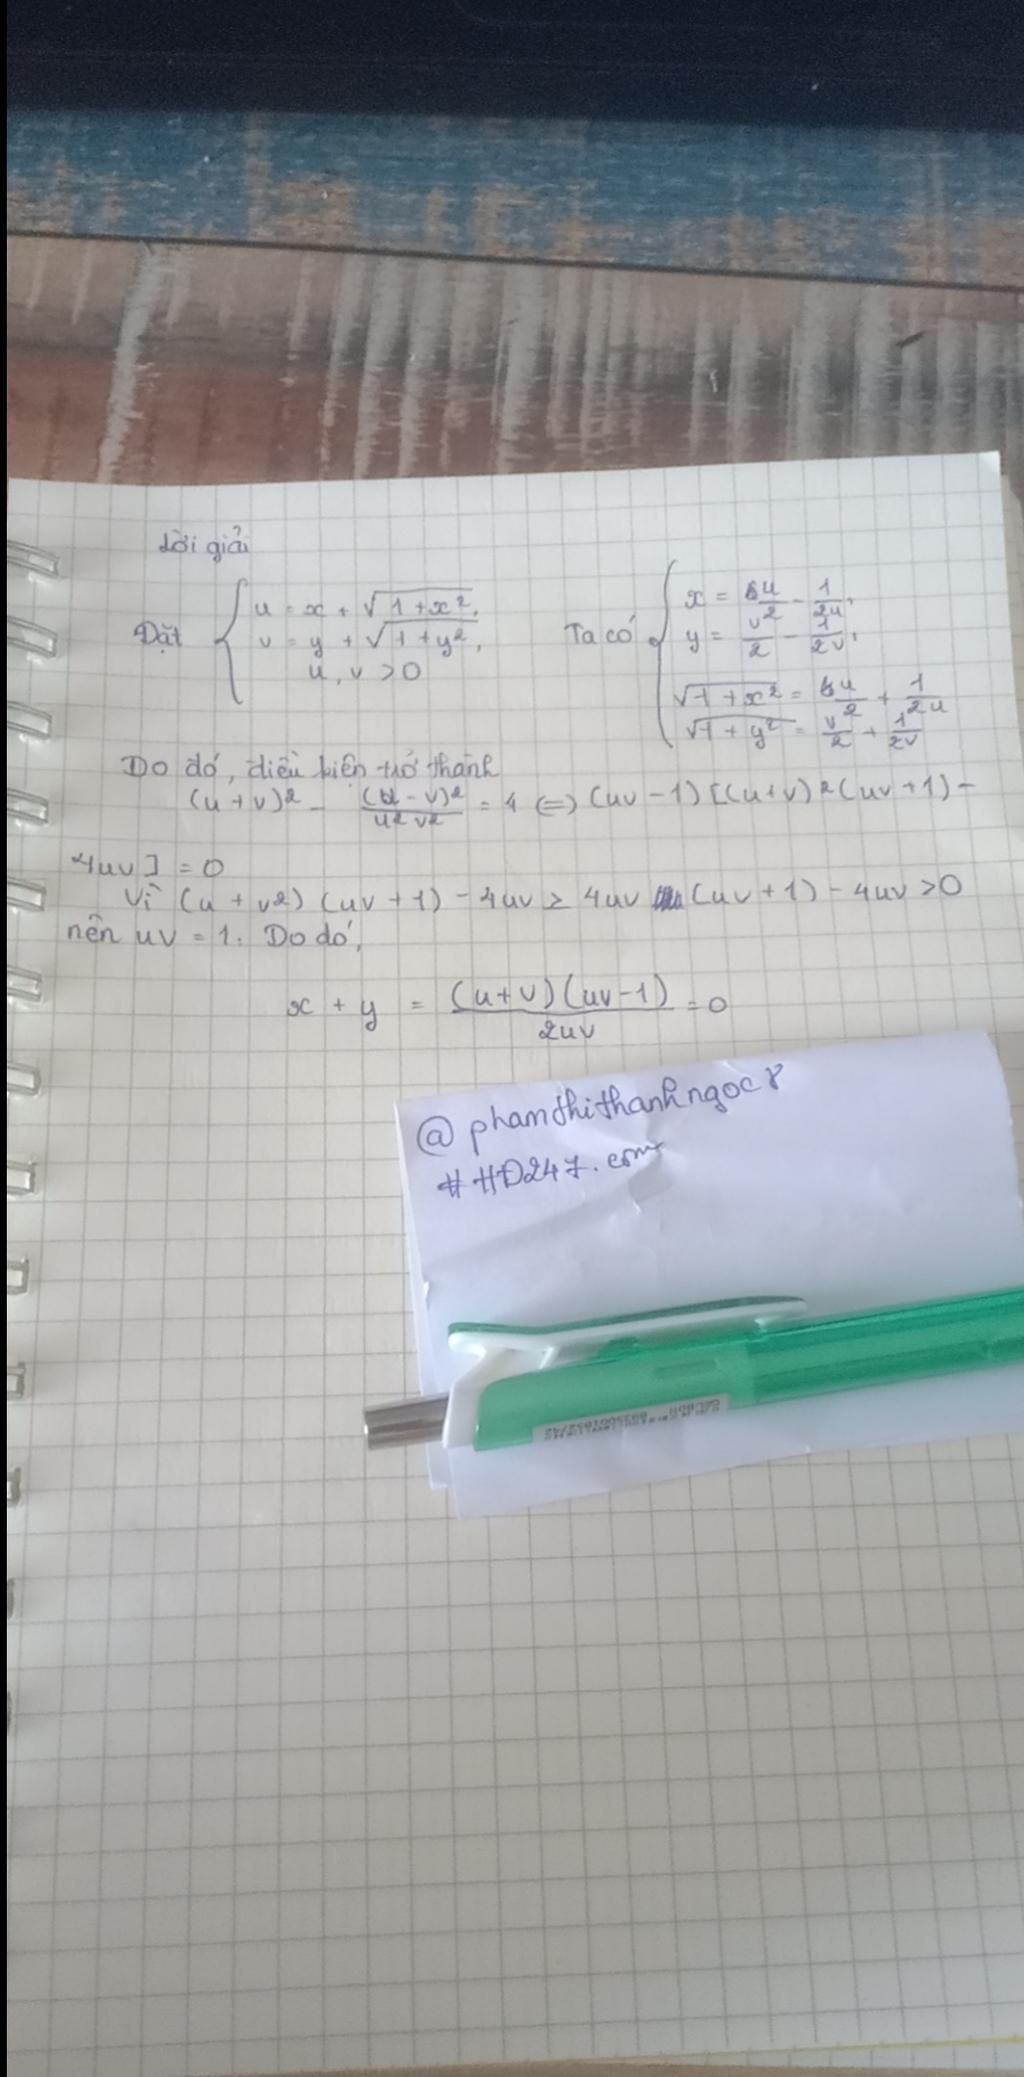 Lời giải
Đặt { u = x + √(1+x²), v = y + √(1+y²), u, v > 0
Ta có { x = u/2 - 1/2u, y = v/2 - 1/2v, √(1+x²) = u/2 + 1/2u, √(1+y²) = v/2 + 1/2v
Do đó, điều kiện trở thành
(u+v)² - (u-v)²/u²v² = 4 ⇔ (uv-1)[(u+v)²(uv+1) -
4uv] = 0
Vì (u+v²)(uv+1) - 4uv ≥ 4uv (uv+1) - 4uv > 0
nên uv = 1. Do đó,
x + y = (u+v)(uv-1)/2uv = 0
@phamthithanhngoc8
#HĐ247.com